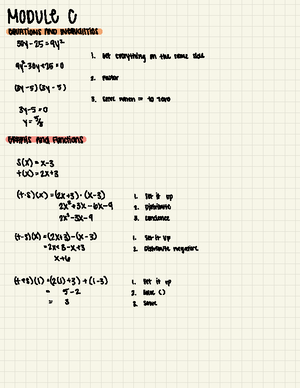 MODULE C
EQUATIONS AND INEQUALITIES
30y - 25 = 9y²
1. Get everything on the same side
9y² - 30y + 25 = 0
2. Factor
(3y - 5)(3y - 5)
3. Solve when = to zero
3y - 5 = 0
y = 5/3
Graphs and Functions
S(x) = x - 3
t(x) = 2x + 3
(t · s)(x) = (2x + 3) · (x - 3)
1. Set it up
2x² + 3x - 6x - 9
2. Distribute
2x² - 3x - 9
3. Condense
(t - s)(x) = (2x + 3) - (x - 3)
1. Set it up
= 2x + 3 - x + 3
2. Distribute negative
x + 6
(t + s)(1) = (2(1) + 3) + (1 - 3)
1. Set it up
= 5 - 2
2. Solve ()
= 3
3. Solve